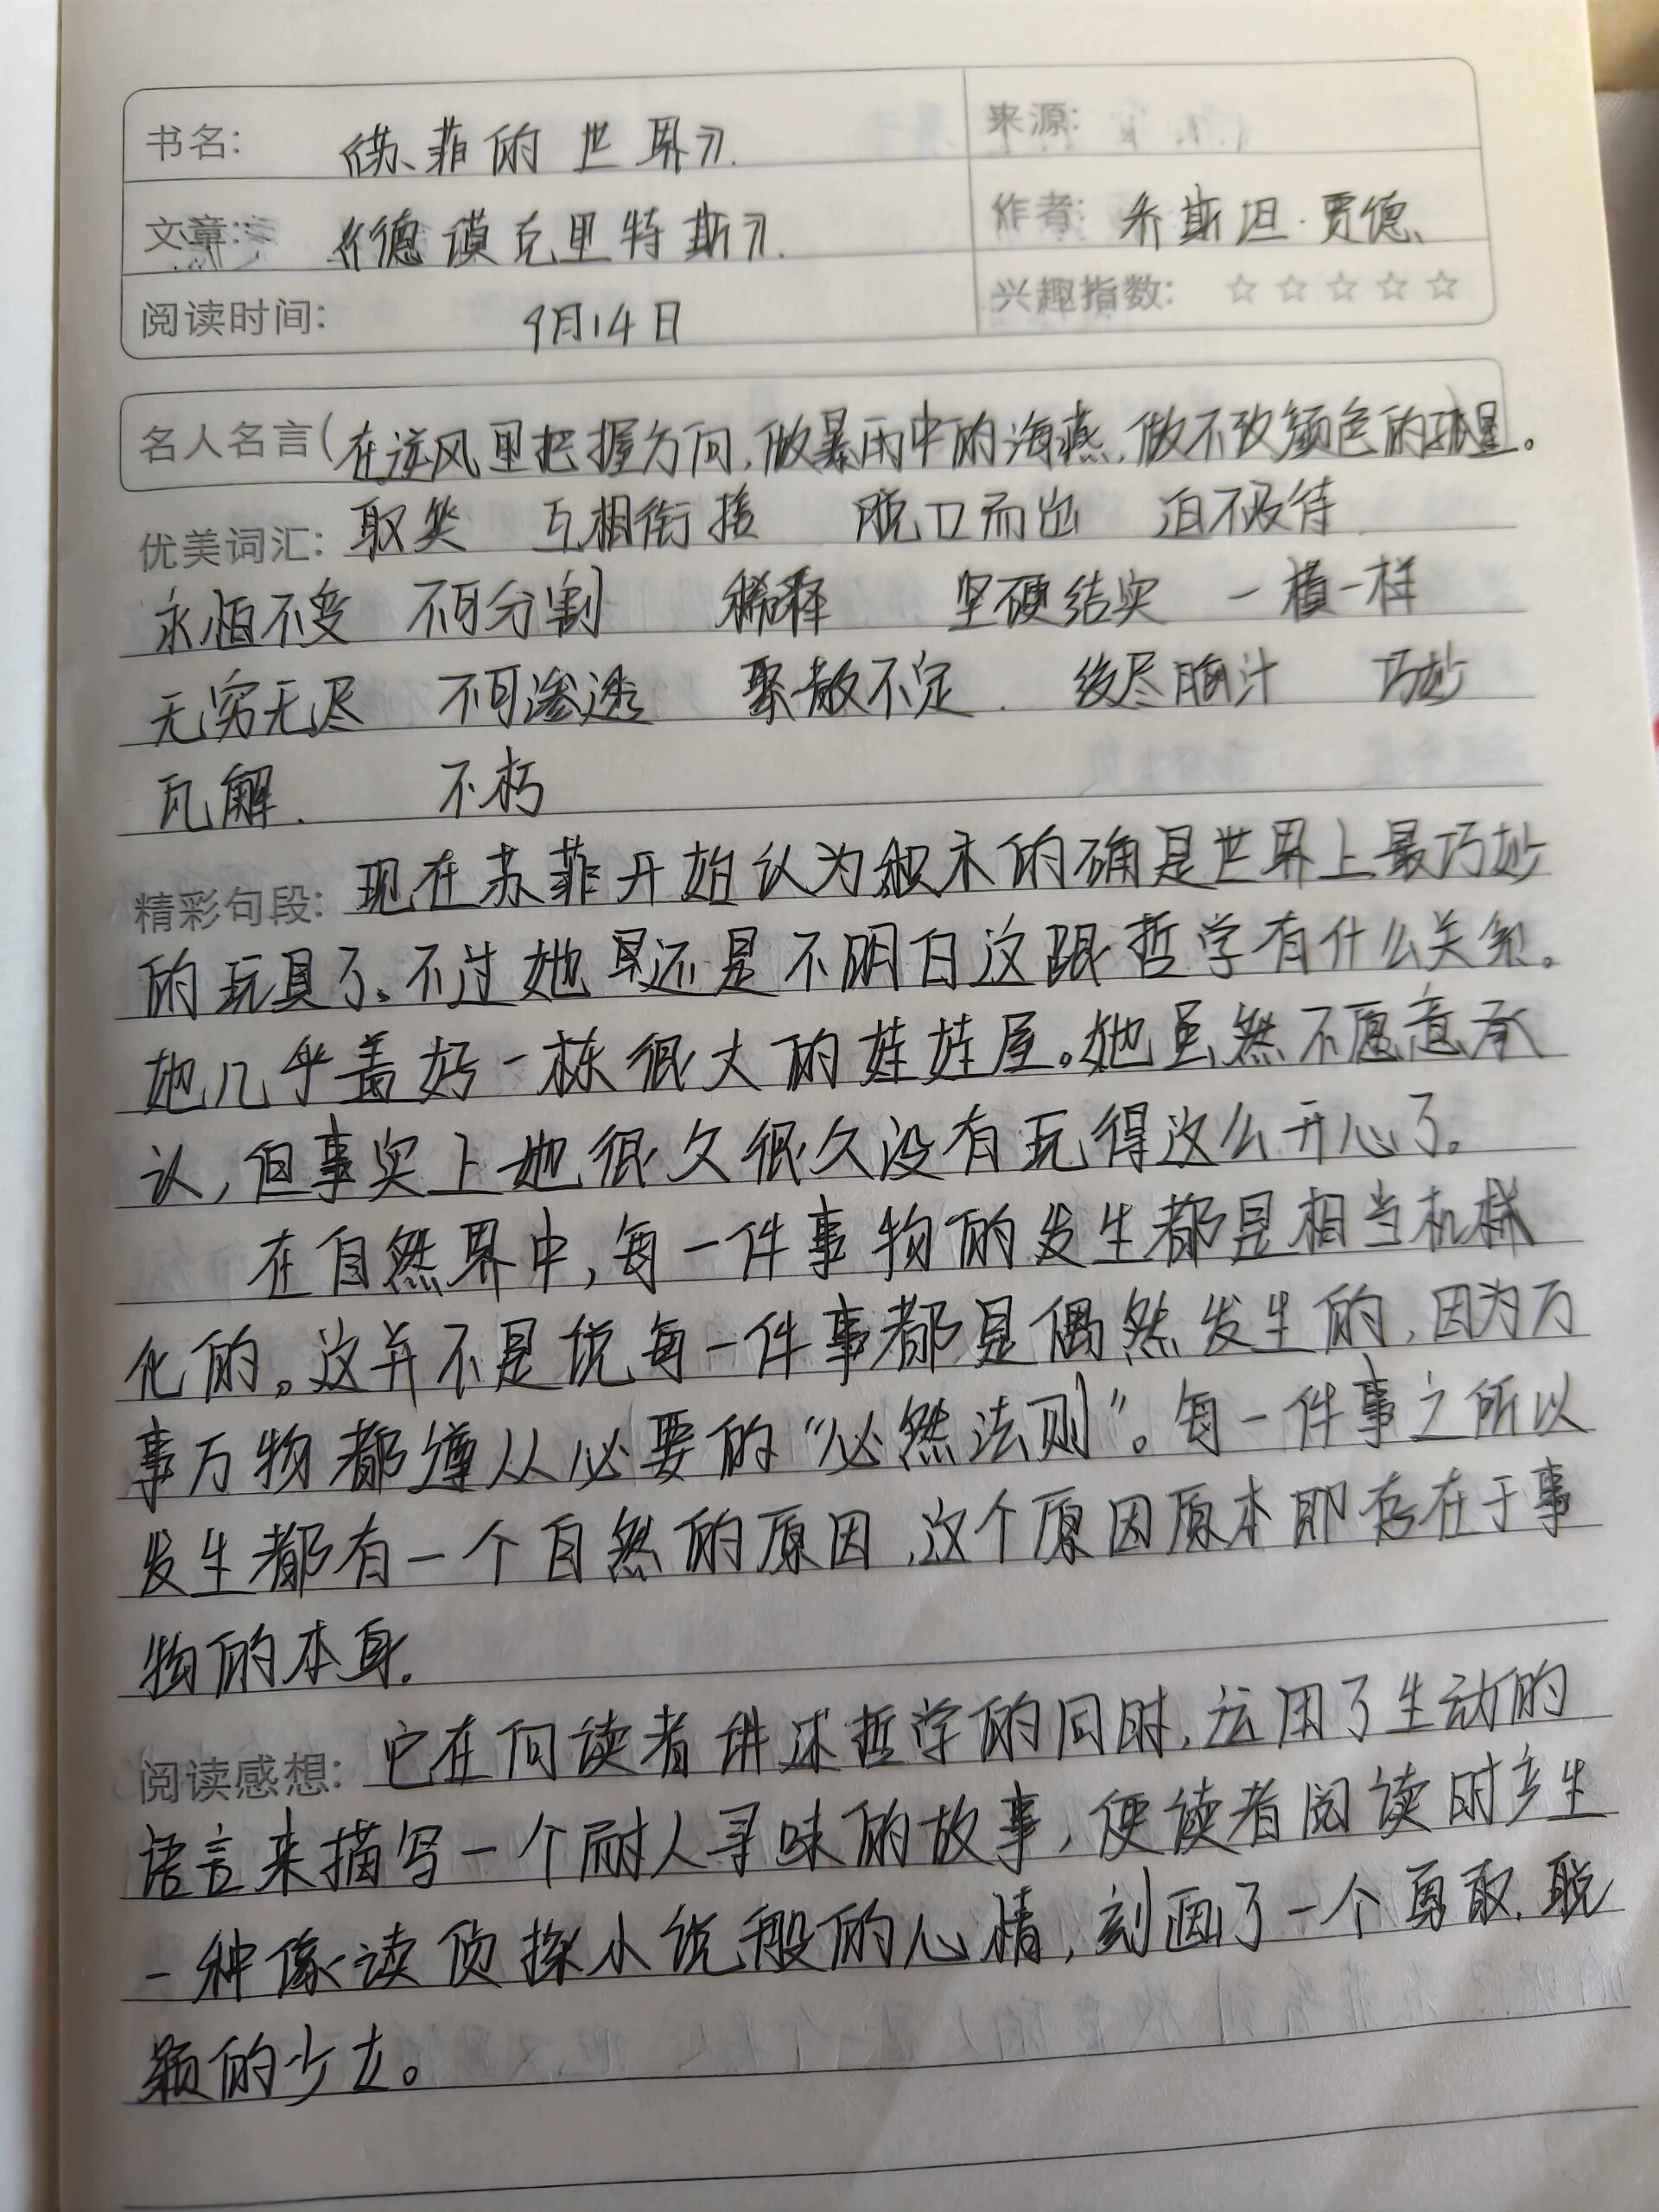 书名: 《苏菲的世界》.
来源:
文章: 《德谟克里特斯》.
作者: 乔斯坦·贾德
阅读时间: 9月14日
兴趣指数: ☆ ☆ ☆ ☆ ☆
名人名言(在逆风里把握方向,做暴雨中的海燕,做不改颜色的孤星。
优美词汇: 取笑 互相衔接 脱口而出 迫不及待
永恒不变 不可分割 稀释 坚硬结实 一模一样
无穷无尽 不可渗透 聚散不定. 绞尽脑汁 巧妙
瓦解. 不朽
精彩句段: 现在苏菲开始认为积木的确是世界上最巧妙
的玩具了。不过她还是不明白这跟哲学有什么关系。
她几乎盖好一栋很大的娃娃屋。她虽然不愿意承
认,但事实上她很久很久没有玩得这么开心了。
在自然界中,每一件事物的发生都是相当机械
化的。这并不是说每一件事都是偶然发生的,因为万
事万物都遵从必要的“必然法则”。每一件事之所以
发生都有一个自然的原因,这个原因原本即存在于事
物的本身.
阅读感想: 它在向读者讲述哲学的同时,运用了生动的
语言来描写一个耐人寻味的故事,使读者阅读时产生
一种像读侦探小说般的心情,刻画了一个勇敢.聪
颖的少女。